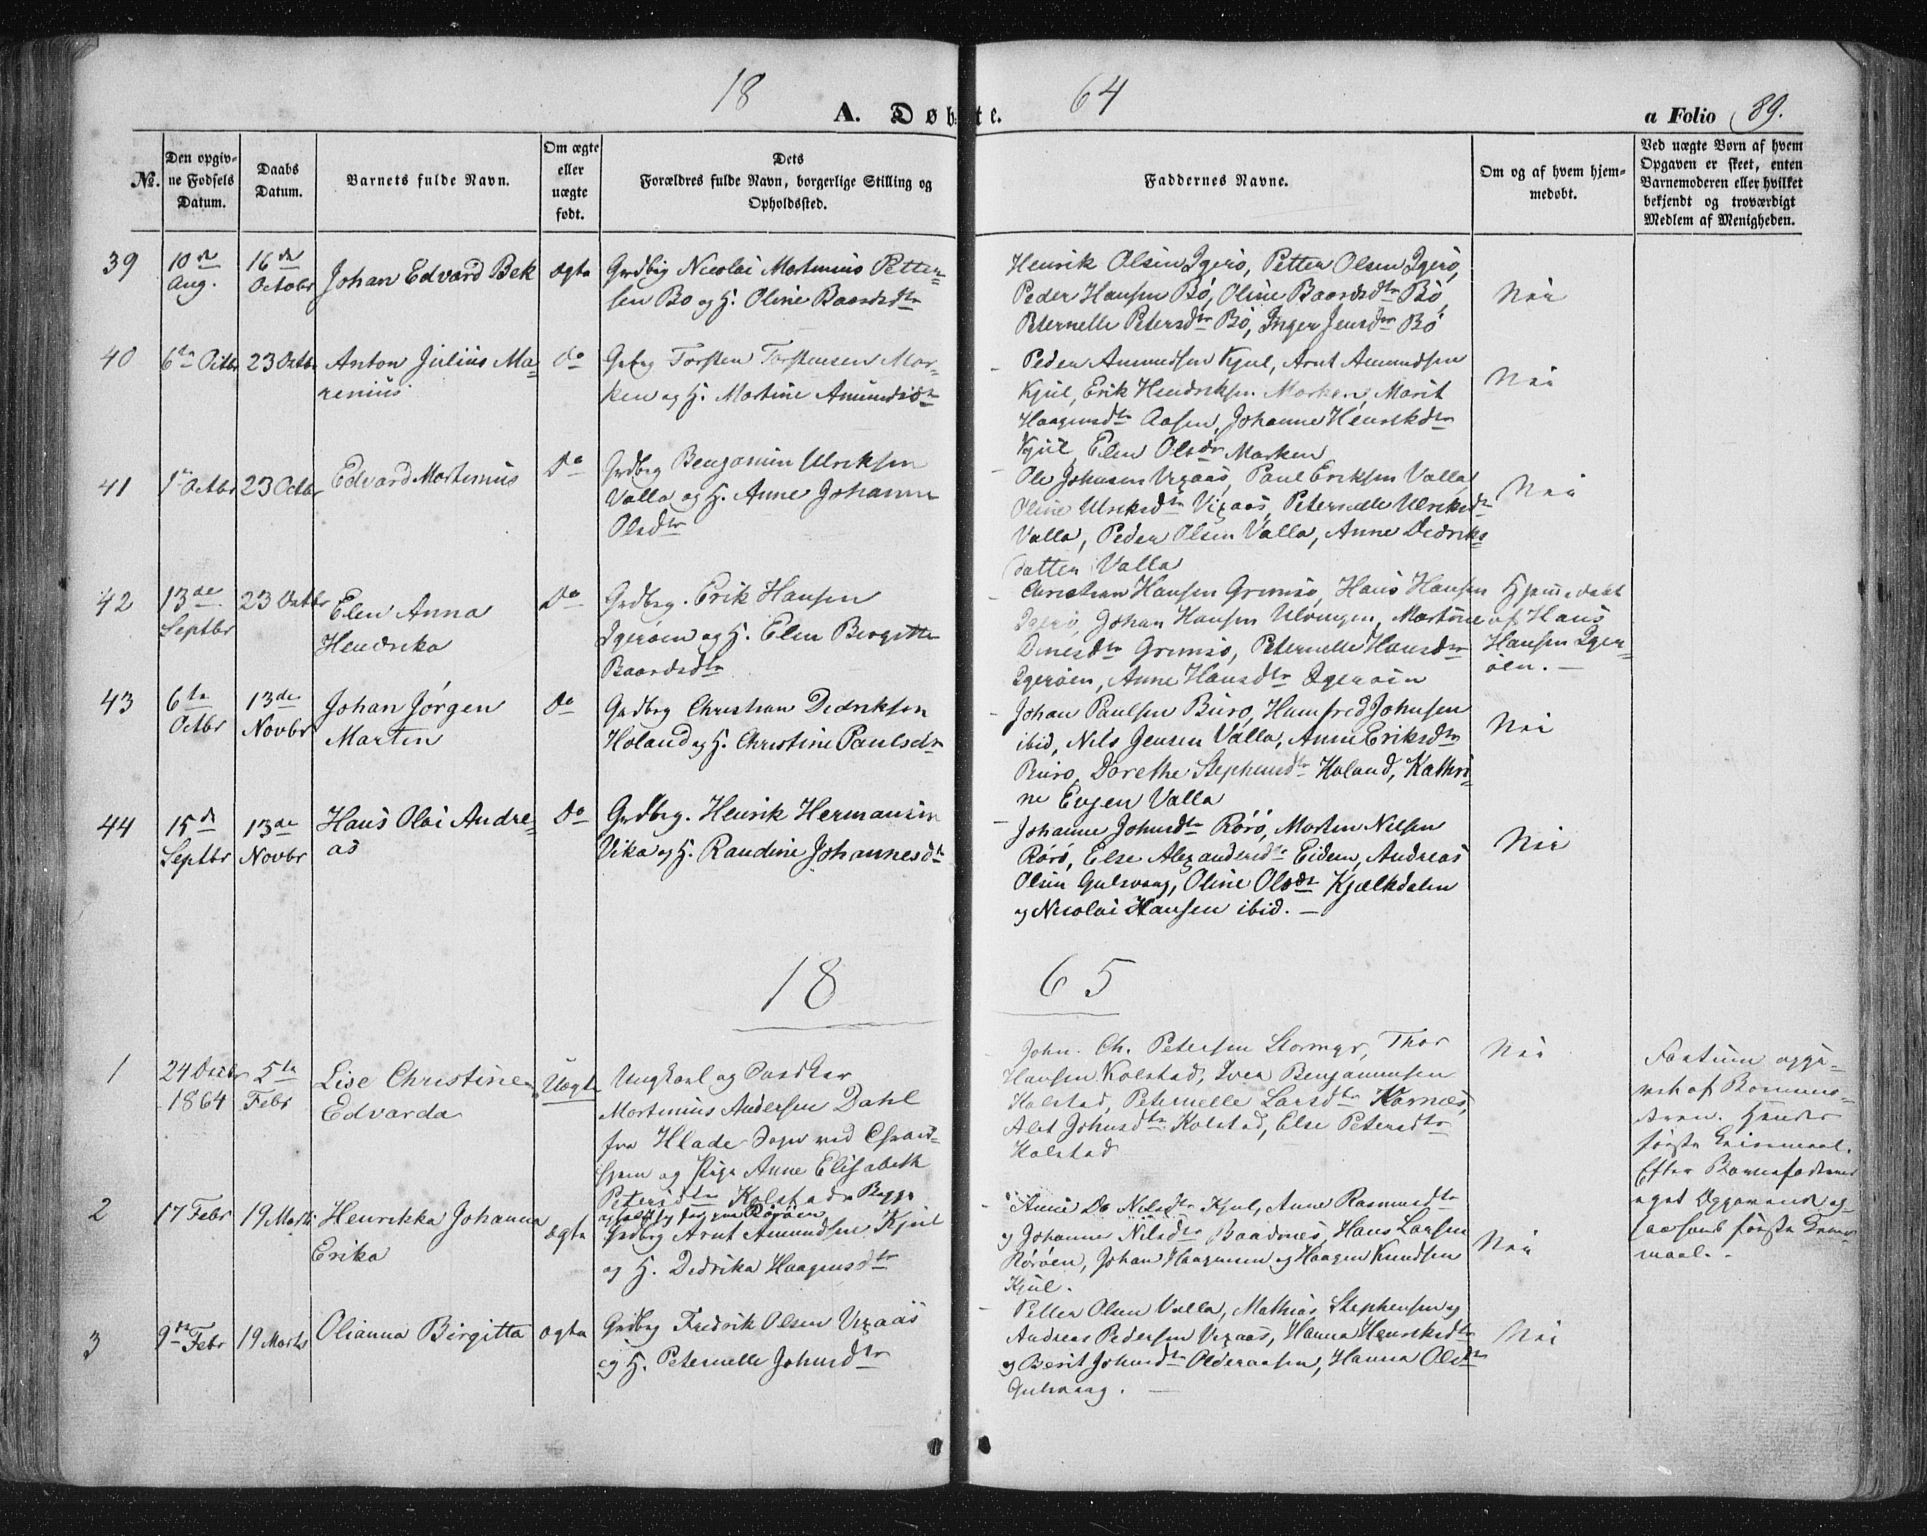 18 64
A. Døbte. a Folio 89.
No.
Den opgivne Fødsels Datum.
Daabs Datum.
Barnets fulde Navn.
Om ægte eller uægte født.
Dets Forældres fulde Navn, borgerlige Stilling og Opholdssted.
Faddernes Navne.
Om og af hvem hjemmedøbt.
Ved uægte Børn af hvem Opgaven er skeet, enten Barnemoderen eller hvilket bekjendt og troværdigt Medlem af Menigheden.
39 10de Aug. 16de October Johan Edvard Bek ægte
Grdbrg Nicolai Martinius Petter-
sen Bø og H. Oline Baardsdtr
Henrik Olsen Igerø, Petter Olsen Igerø,
Peder Hansen Bø, Oline Baardsdtr Bø,
Peternelle Petersdtr Bø, Inger Jensdtr Bø
Nei
40 6te Octbr 23 Octbr Anton Julius Ma-
renius
Do
Gdbrg Torsten Torstensen Mar-
ken og H. Martine Amundsdtr
Peder Amundsen Kjul, Arnt Amundsen
Kjul, Erik Hendriksen Marken, Marit
Haagensdtr Aasen, Johanne Henriksdtr
Kjul, Elen Olsdtr Marken
Nei
41 1ste Octbr 23 Octbr Edvard Martinius Do
Grdbrg Benjamin Ulriksen
Valla og H. Anne Johanna
Olsdtr
Ole Johnsen Vixaas, Paul Eriksen Valla,
Oline Ulriksdtr Vixaas, Peternelle Ulriksdtr
Valla, Peder Olsen Valla, Anne Didriks-
datter Valla
Nei
42 13de Septbr 23 Octbr Elen Anna
Hendrika
Do
Grdbrg. Erik Hansen
Igerøen og H. Elen Birgitte
Baardsdtr
Christian Hansen Grimsø, Hans Hansen
Igerø, Johan Hansen Ulvingen, Martine
Dinesdtr Grimsø, Peternelle Hansdtr
Igerøen, Anne Hansdtr Igerøen
Hjemmedøbt
af Hans
Hansen Iger-
øen. —
43 6te Octbr 13de Novbr Johan Jørgen
Martin
Do
Gadbrg Christian Didriksen
Holand og H. Christine Paulsdtr
Johan Paulsen Buro, Humfred Johnsen
ibid, Nils Jensen Valla, Anne Eriksdtr
Buro, Dorethe Stephensdtr Holand, Kathri-
ne Evjen Valla
Nei
44 15de Septbr 13de Novbr Hans Olai Andre-
as
Do
Grdbrg. Henrik Hermansen
Vika og H. Randine Johannesdtr
Johanne Johnsdtr Rørø, Morten Nilsen
Rørø, Else Alexandersdtr Eidem, Andreas
Olsen Gulsvaag, Oline Olsdtr Kjælkdalen
og Nicolai Hansen ibid. —
Nei
18 65
1 24 Decbr 1864 5te Febr Lise Christine
Edvarda
Uægte
Ungkarl og
Martinius Andersen Dahl
fra Hlade Sogn ved
hjem og Pige Anne Elisabeth
Petersdtr Kolstad. Begge
John. Ch. Petersen Stormyr, Thor
Hansen Kolstad, Iver Benjaminsen
Holstad, Peternelle Larsdtr Hornæs,
Alet Johnsdtr Kolstad, Else Petersdtr
Holstad
Nei
opgi-
vet af Barnemo-
deren. Hendes
første Leiermaal.
Efter Barnefaderens
eget Opgivende og-
saa hans første Leier-
maal. -
2 17 Febr 19 Marts Henrikka Johanna
Erika
ægte
Grdbrg Arnt Amundsen Kjul
og H. Didrika Haagensdtr
Anne Do Nilsdtr Kjul, Anne Rasmusdtr
og Johanne Nilsdtr Baadsnes, Hans Larsen
Rørøen, Johan Haagensen og Haagen Knudsen
Kjul.
Nei
3 9de Febr 19 Marts Olianna Birgitta ægte
Grdbrg Fredrik Olsen Vixaas
og H. Peternelle Johnsdtr
Petter Olsen Valla, Mathias Stephensen og
Andreas Pedersen Vixaas, Hanna Henriksdtr
og Berit Johnsdtr Olderaasen, Hanna Olsdtr
Gulsvaag. —
Nei